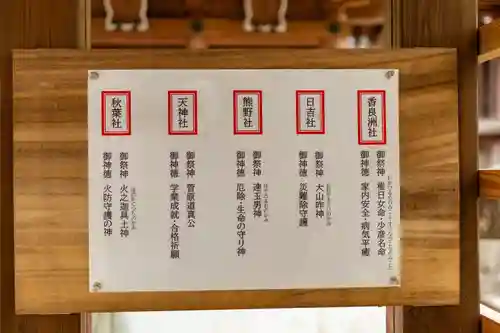 香良洲社
御祭神 稚日女命・少彦名命
御神徳 家内安全・病気平癒
日吉社
御祭神 大山咋神
御神徳 災難除守護
熊野社
御祭神 速玉男神
御神徳 厄除・生命の守り神
天神社
御祭神 菅原道真公
御神徳 学業成就・合格祈願
秋葉社
御祭神 火之迦具土神
御神徳 火防守護の神